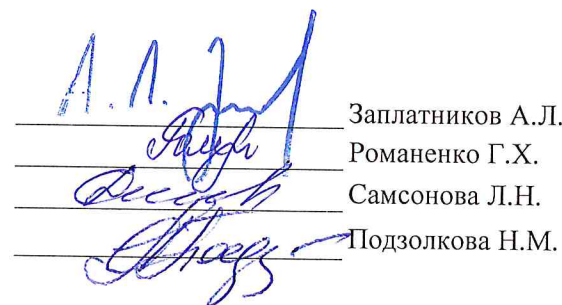 А.Л.
Заплатников А.Л.
Романенко Г.Х.
Самсонова Л.Н.
Подзолкова Н.М.